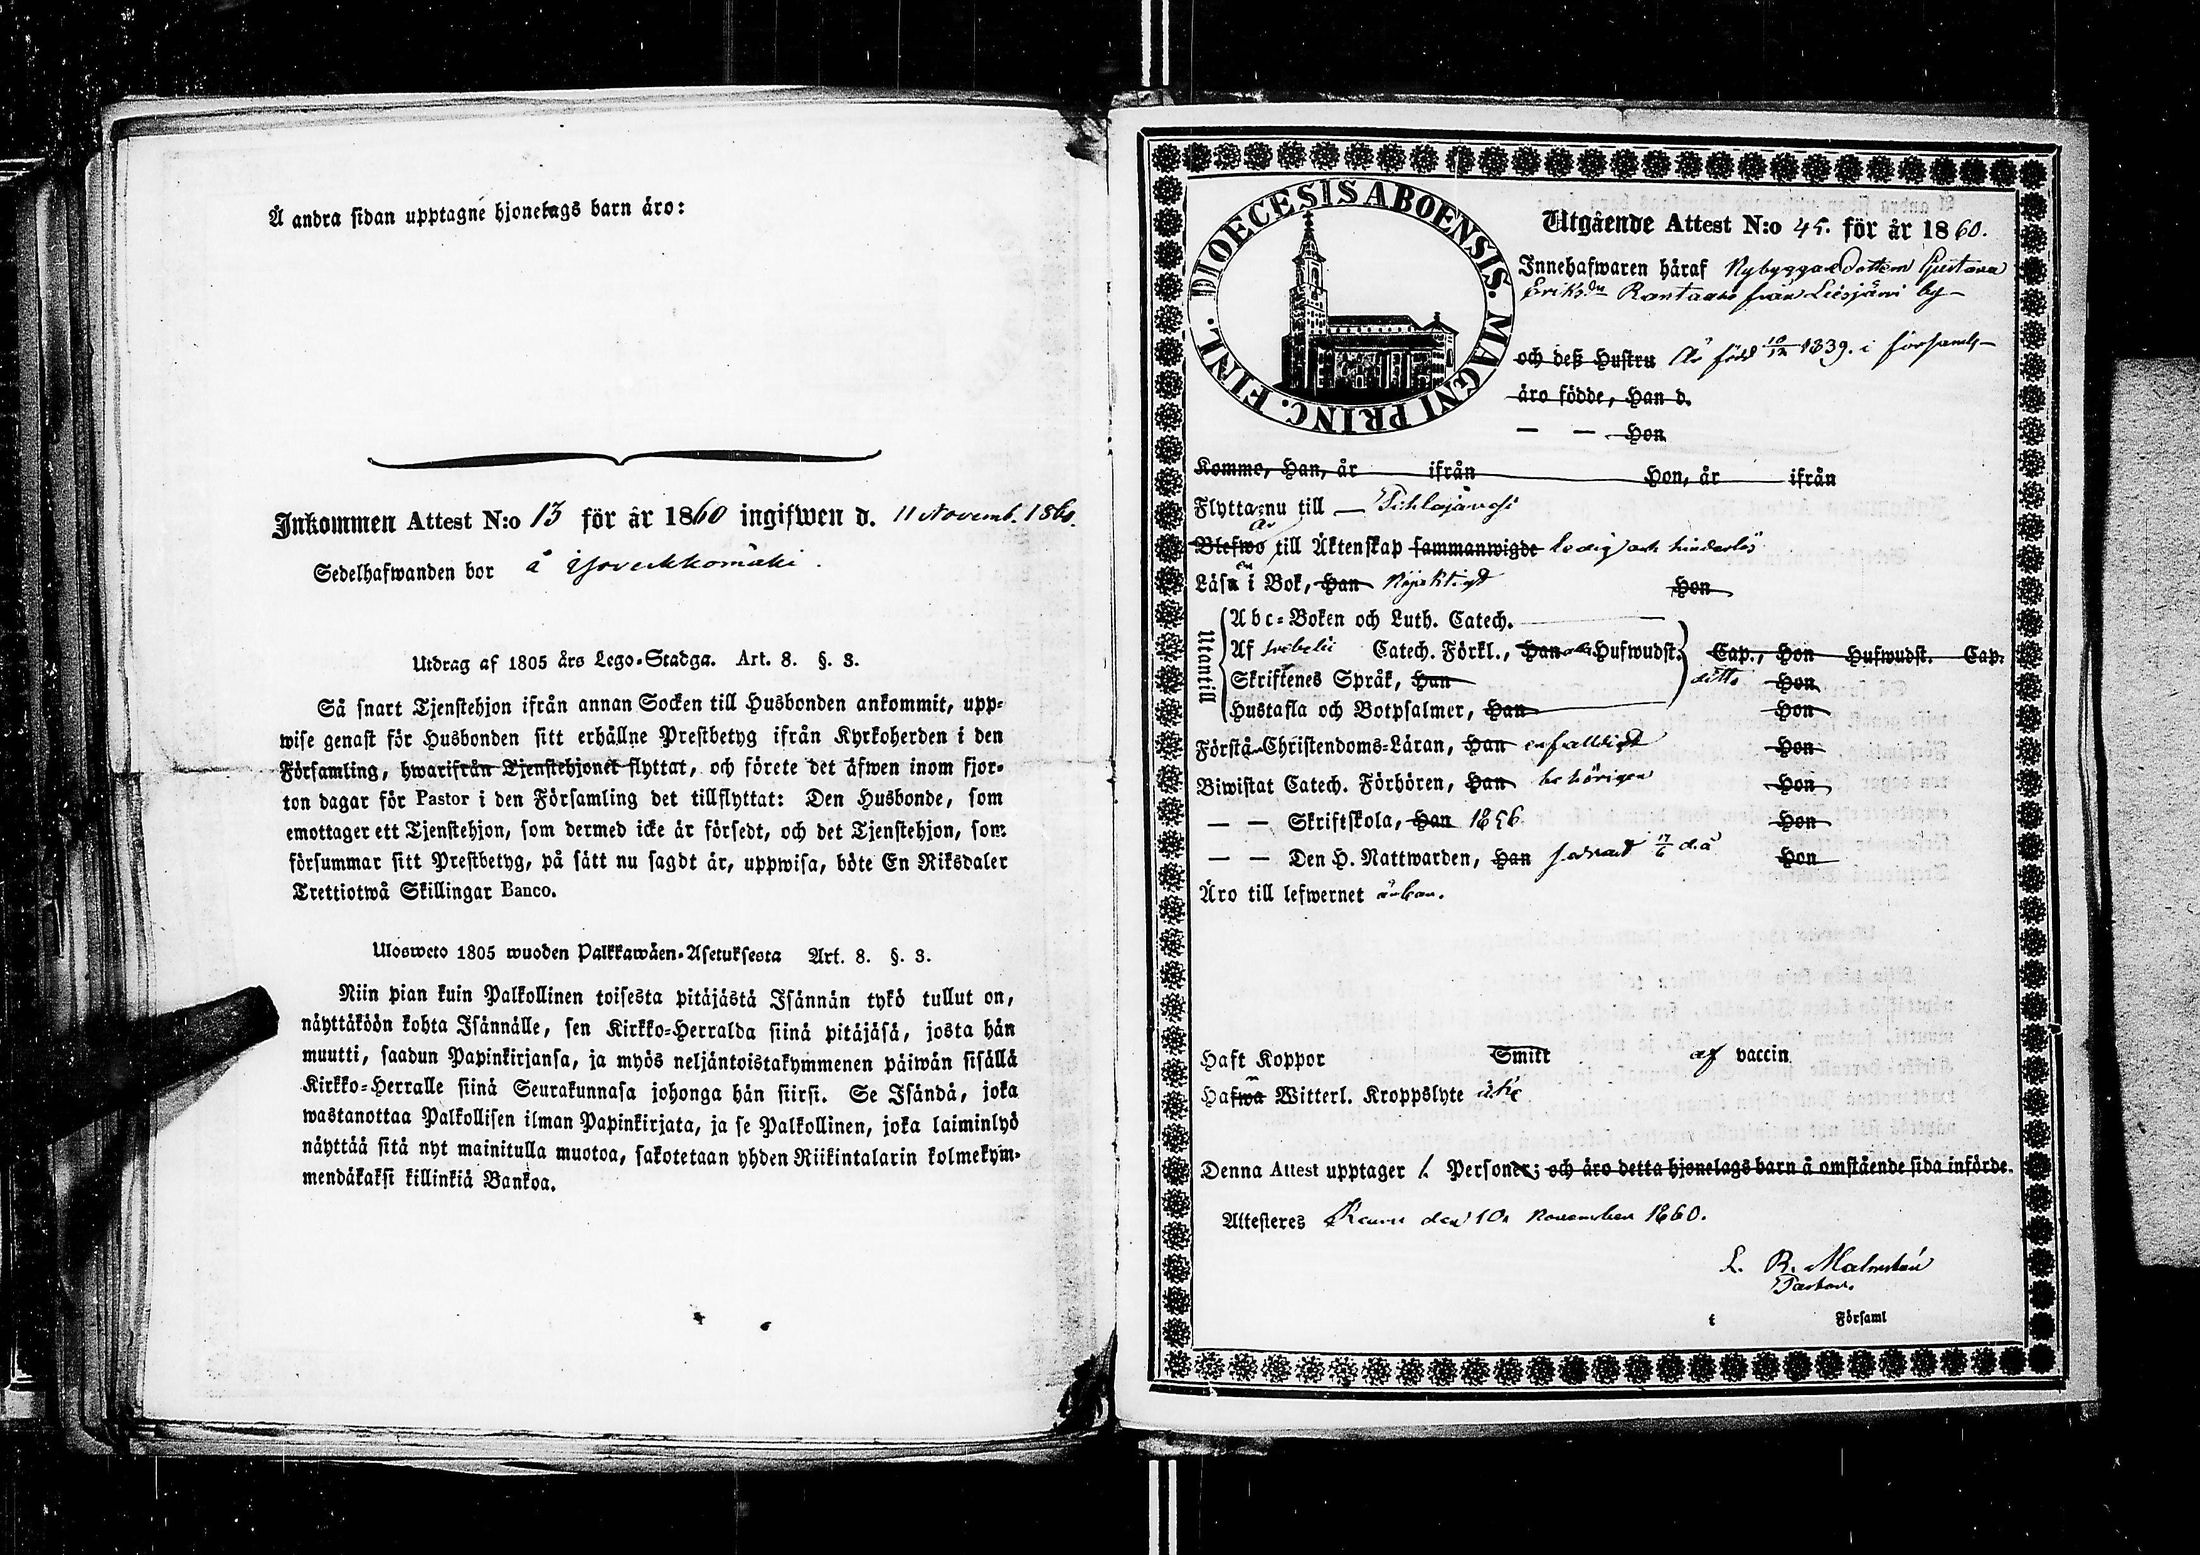 Å andra sidan upptagne hjonelags barn äro:
Inkommen Attest N:o 13 för år 1860 ingifwen d. 11 Novemb. 1860.
Sedelhafwanden bor å
Utdrag af 1805 års Lego-Stadga. Art. 8. §. 3.
Så snart Tjenstehjon ifrån annan Socken till Husbonden ankommit, upp-
wise genast för Husbonden sitt erhållne Prestbetyg ifrån Kyrkoherden i den
Församling, hwarifrån Tjenstehjonet flyttat, och förete det äfwen inom fjor-
ton dagar för Pastor i den Församling det tillflyttat: Den Husbonde, som
emottager ett Tjenstehjon, som dermed icke är försedt, och det Tjenstehjon, som
försummar sitt Prestbetyg, på sätt nu sagdt är, uppwisa, böte En Riksdaler
Trettiotwå Skillingar Banco.
Ulosweto 1805 wuoden Palkkawäen-Asetuksesta Art. 8. §. 3.
Niin pian kuin Palkollinen toisesta pitäjästä Isännän tykö tullut on,
näyttäköön kohta Isännälle, sen Kirkko-Herralda siinä pitäjäsä, josta hän
muutti, saadun Papinkirjansa, ja myös neljäntoistakymmenen päiwän sisällä
Kirkko-Herralle siinä Seurakunnasa johonga hän siirsi. Se Isändä, joka
wastanottaa Palkollisen ilman Papinkirjata, ja se Palkollinen, joka laiminlyö
näyttää sitä nyt mainitulla muotoa, sakotetaan yhden Riikintalarin kolmekym-
mendäkaksi killinkiä Bankoa.
DIOECESIS ABOENSIS. MAGNI PRINC. FINL.
Utgående Attest N:o 45. för år 1860.
Innehafwaren häraf Nybyggaredottern Gustava
Eriks dr från by
och deß Hustru Är född 10/12 1839. i församl
äro födde, Han d.
— — Hon
Komme, Han, år ifrån Hon, år ifrån
Flytta nu till — Pihlajavesi
Är
Blefwo till Äktenskap sammanwigde ledig och hinderlös
Läsa i Bok, Han Nöjaktigt Hon
Utantill
Abc-Boken och Luth. Catech.
Af Svebelii Catech. Förkl., Han alla Hufwudst. Cap., Hon Hufwudst. Cap.
Skriftenes Språk, Han ditto Hon
Hustafla och Botpsalmer, Han Hon
Förstå Christendoms-Läran, Han enfalldigt Hon
Biwistat Catech. Förhören, Han behörigen Hon
— — Skriftskola, Han 1856 Hon
— — Den H. Nattwarden, Han senast 17/6 d.å Hon
Äro till lefwernet ärbar.
Haft Koppor Smitt af vaccin
Hafwa Witterl. Kroppslyte icke
Denna Attest upptager 1. Personer; och äro detta hjonelags barn å omstående sida införde.
Attesteres Keuru den 10 November 1860.
L. R. Malmstén
Pastor.
i Församl